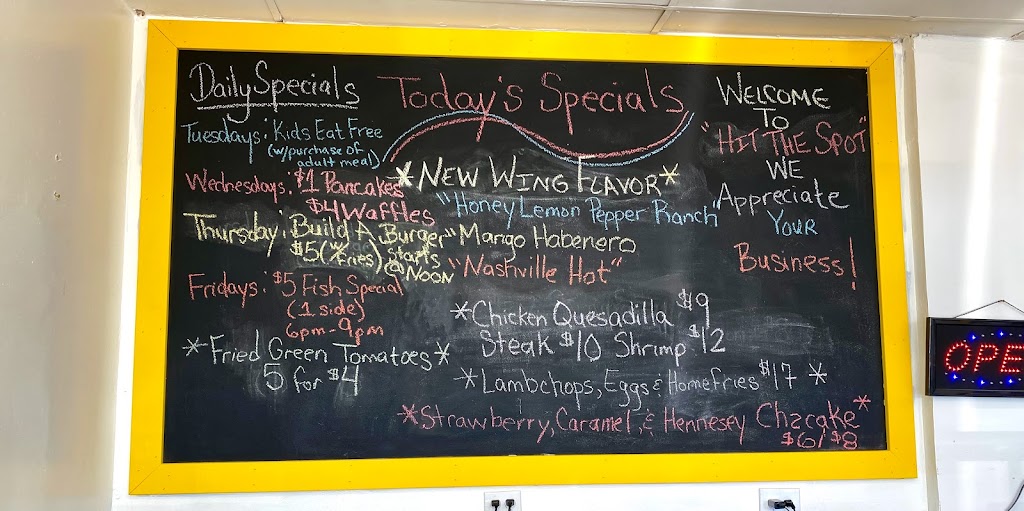 Daily Specials
Tuesdays: Kids Eat Free
(w/purchase of
adult meal)
Wednesdays: $1 Pancakes
$4 Waffles
Thursday: Build A Burger
$5 (*fries) Starts
@ NOON
Fridays: $5 Fish Special
(1 side)
6pm-9pm
*Fried Green Tomatoes*
5 for $4
Today's Specials
*NEW WING FLAVOR*
"Honey Lemon Pepper Ranch"
"Mango Habenero
"Nashville Hot"
*Chicken Quesadilla $9
Steak $10 Shrimp $12
*Lambchops, Eggs & Homefries $17 *
*Strawberry, Caramel, & Hennesey Chzcake*
$6/$8
WELCOME
TO
"HIT THE SPOT"
WE
Appreciate
YOUR
Business!
OPE